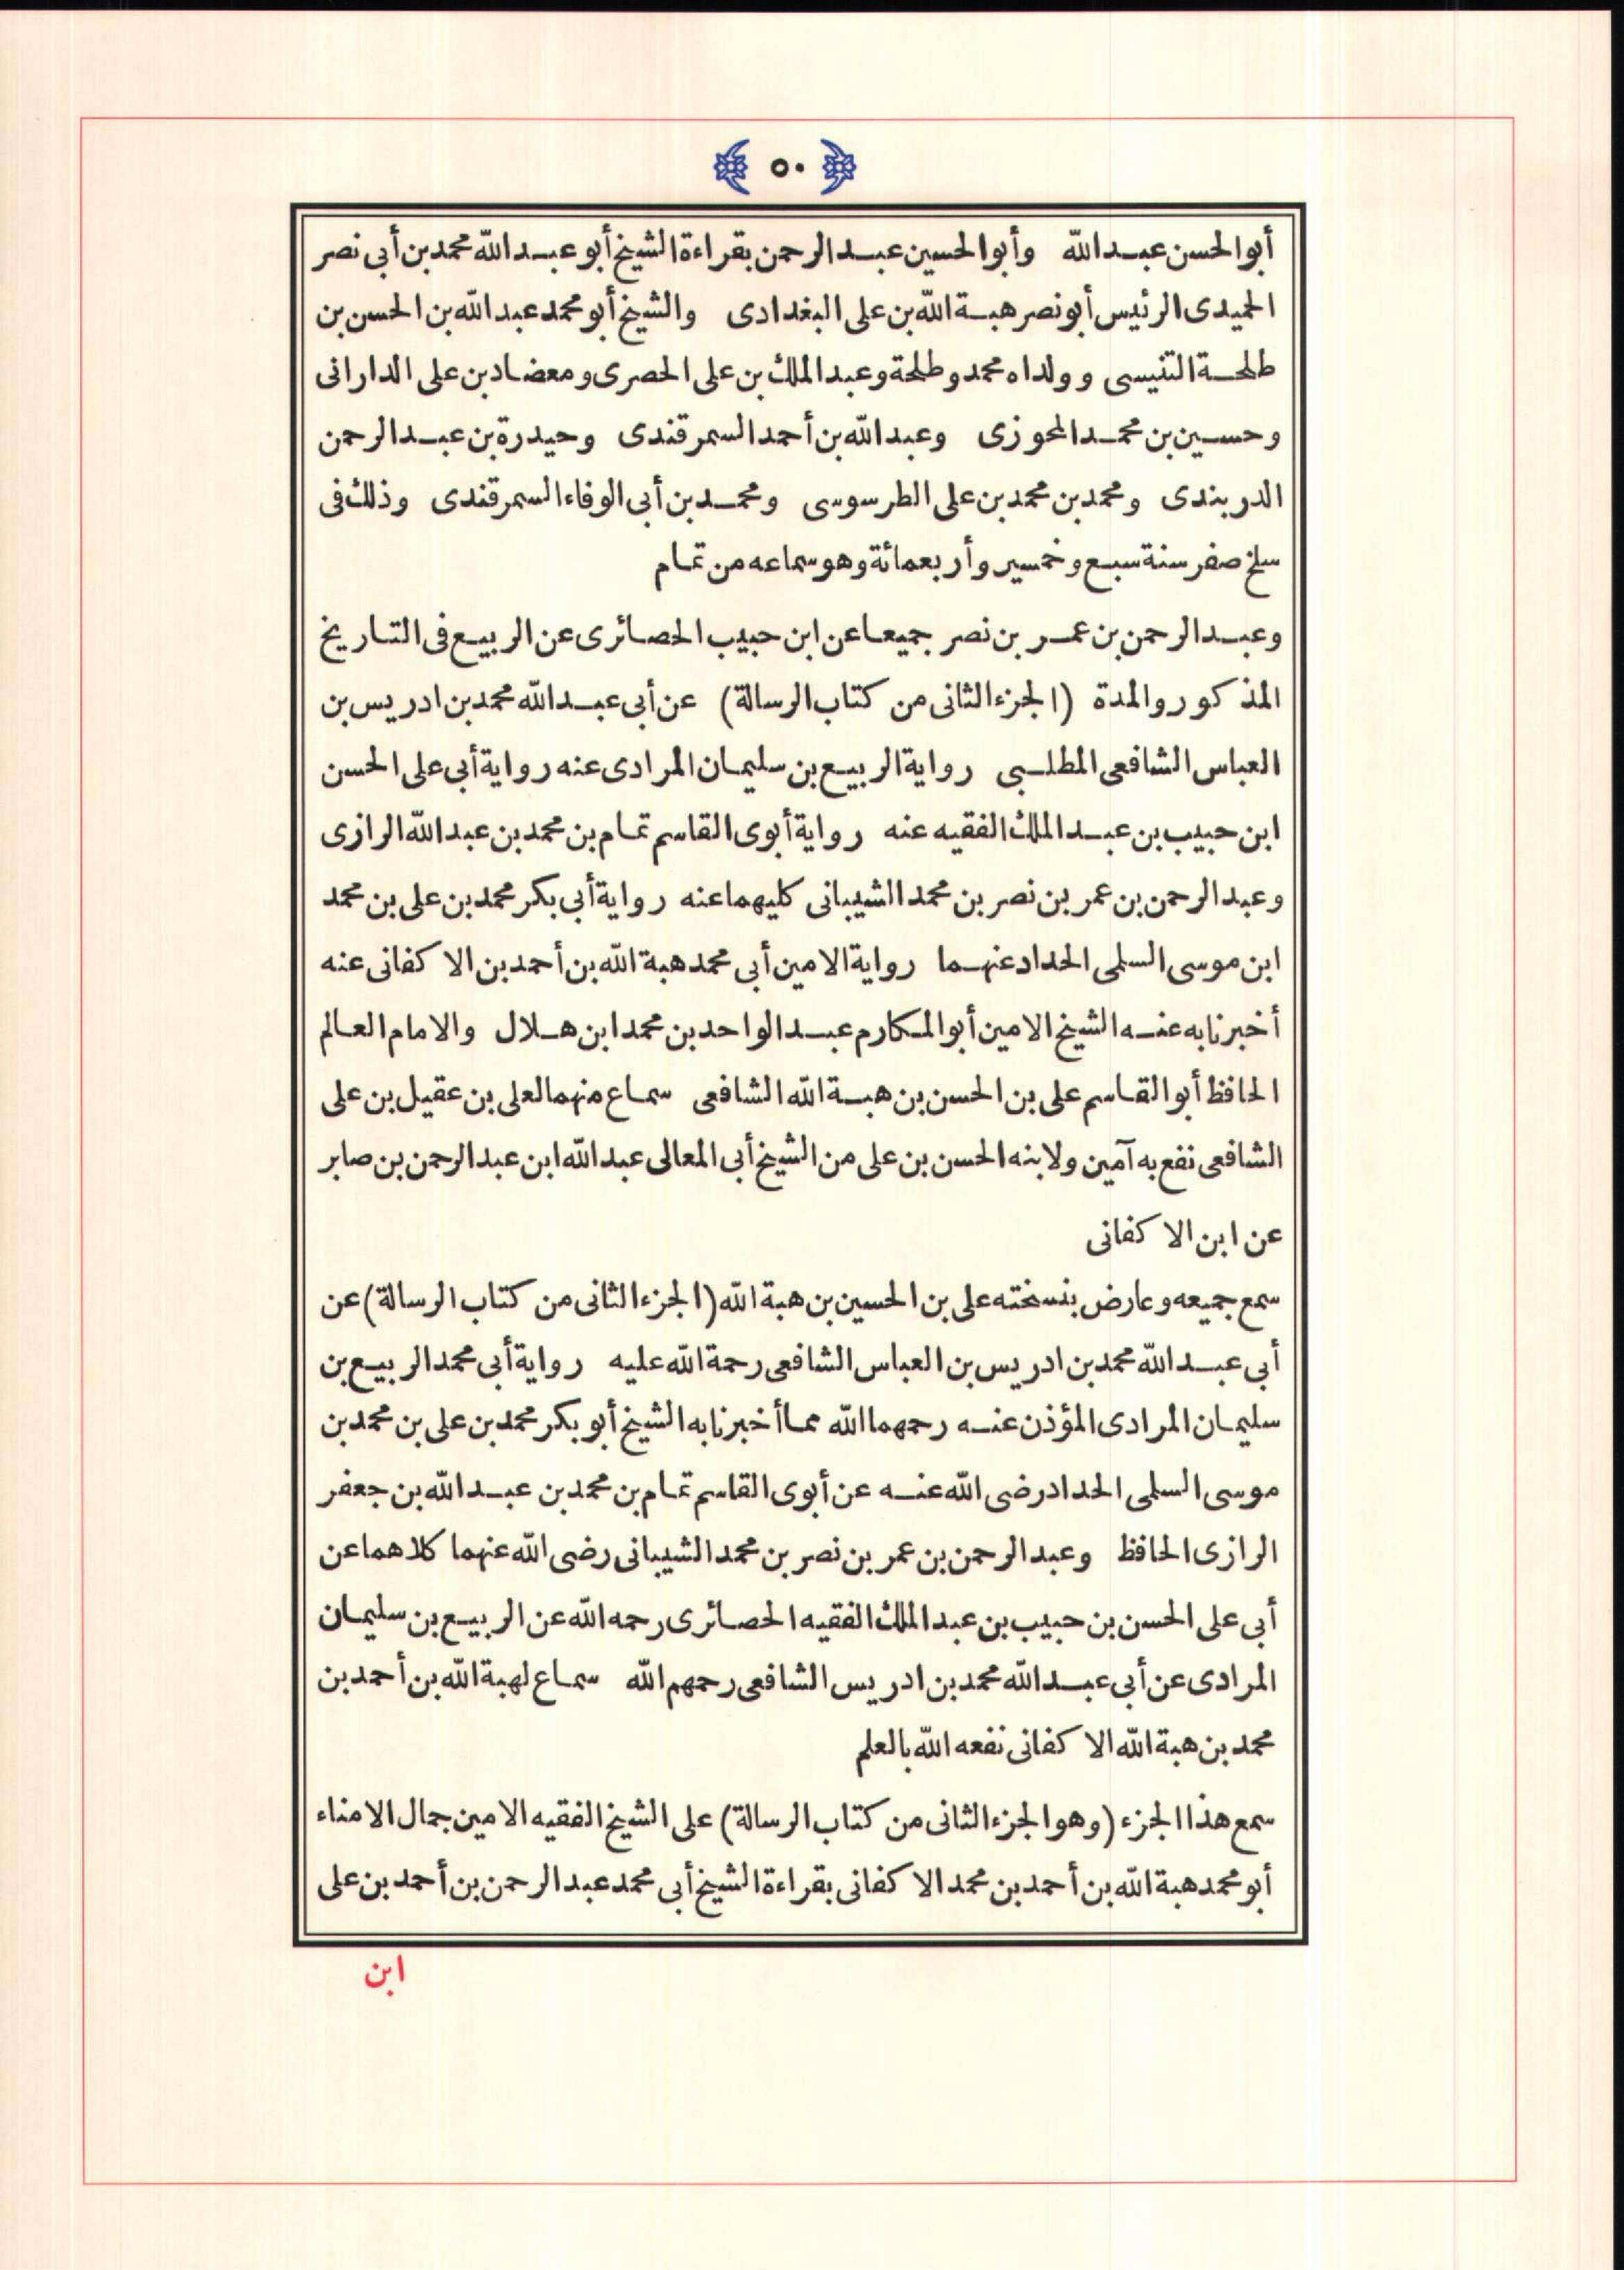 ٥٠
أبو الحسن عبد الله وأبو الحسين عبد الرحمن بقراءة الشيخ أبو عبد الله محمد بن أبى نصر
الحميدى الرئيس أبو نصر هبة الله بن على البغدادى والشيخ أبو محمد عبد الله بن الحسن بن
طلحة التنيسى وولداه محمد وطلحة وعبد الملك بن على الحصرى ومعضاد بن على الدارانى
وحسين بن محمد الحوزى وعبد الله بن أحمد السمرقندى وحيدرة بن عبد الرحمن
الدربندى ومحمد بن محمد بن على الطرسوسى ومحمد بن أبى الوفاء السمرقندى وذلك فى
سلخ صفر سنة سبع وخمسير وأربعمائة وهو سماعه من تمام
وعبد الرحمن بن عمر بن نصر جميعا عن ابن حبيب الحصائرى عن الربيع فى التاريخ
المذكور والمدة (الجزء الثانى من كتاب الرسالة) عن أبى عبد الله محمد بن ادريس بن
العباس الشافعى المطلبى رواية الربيع بن سليمان المرادى عنه رواية أبى على الحسن
ابن حبيب بن عبد الملك الفقيه عنه رواية أبوى القاسم تمام بن محمد بن عبد الله الرازى
وعبد الرحمن بن عمر بن نصر بن محمد الشيبانى كليهما عنه رواية أبى بكر محمد بن على بن محمد
ابن موسى السلمى الحداد عنهما رواية الامين أبى محمد هبة الله بن أحمد بن الاكفانى عنه
أخبرنا به عنه الشيخ الامين أبو المكارم عبد الواحد بن محمد ابن هلال والامام العالم
الحافظ أبو القاسم على بن الحسن بن هبة الله الشافعى سماع منهما لعلى بن عقيل بن على
الشافعى نفع به آمين ولابنه الحسن بن على من الشيخ أبى المعالى عبد الله ابن عبد الرحمن بن صابر
عن ابن الاكفانى
سمع جميعه وعارض بنسخته على بن الحسين بن هبة الله (الجزء الثانى من كتاب الرسالة) عن
أبى عبد الله محمد بن ادريس بن العباس الشافعى رحمة الله عليه رواية أبى محمد الربيع بن
سليمان المرادى المؤذن عنه رحمهما الله مما أخبرنا به الشيخ أبو بكر محمد بن على بن محمد بن
موسى السلمى الحداد رضى الله عنه عن أبوى القاسم تمام بن محمد بن عبد الله بن جعفر
الرازى الحافظ وعبد الرحمن بن عمر بن نصر بن محمد الشيبانى رضى الله عنهما كلاهما عن
أبى على الحسن بن حبيب بن عبد الملك الفقيه الحصائرى رحمه الله عن الربيع بن سليمان
المرادى عن أبى عبد الله محمد بن ادريس الشافعى رحمهم الله سماع لهبة الله بن أحمد بن
محمد بن هبة الله الاكفانى نفعه الله بالعلم
سمع هذا الجزء (وهو الجزء الثانى من كتاب الرسالة) على الشيخ الفقيه الامين جمال الامناء
أبو محمد هبة الله بن أحمد بن محمد الاكفانى بقراءة الشيخ أبى محمد عبد الرحمن بن أحمد بن على
ابن